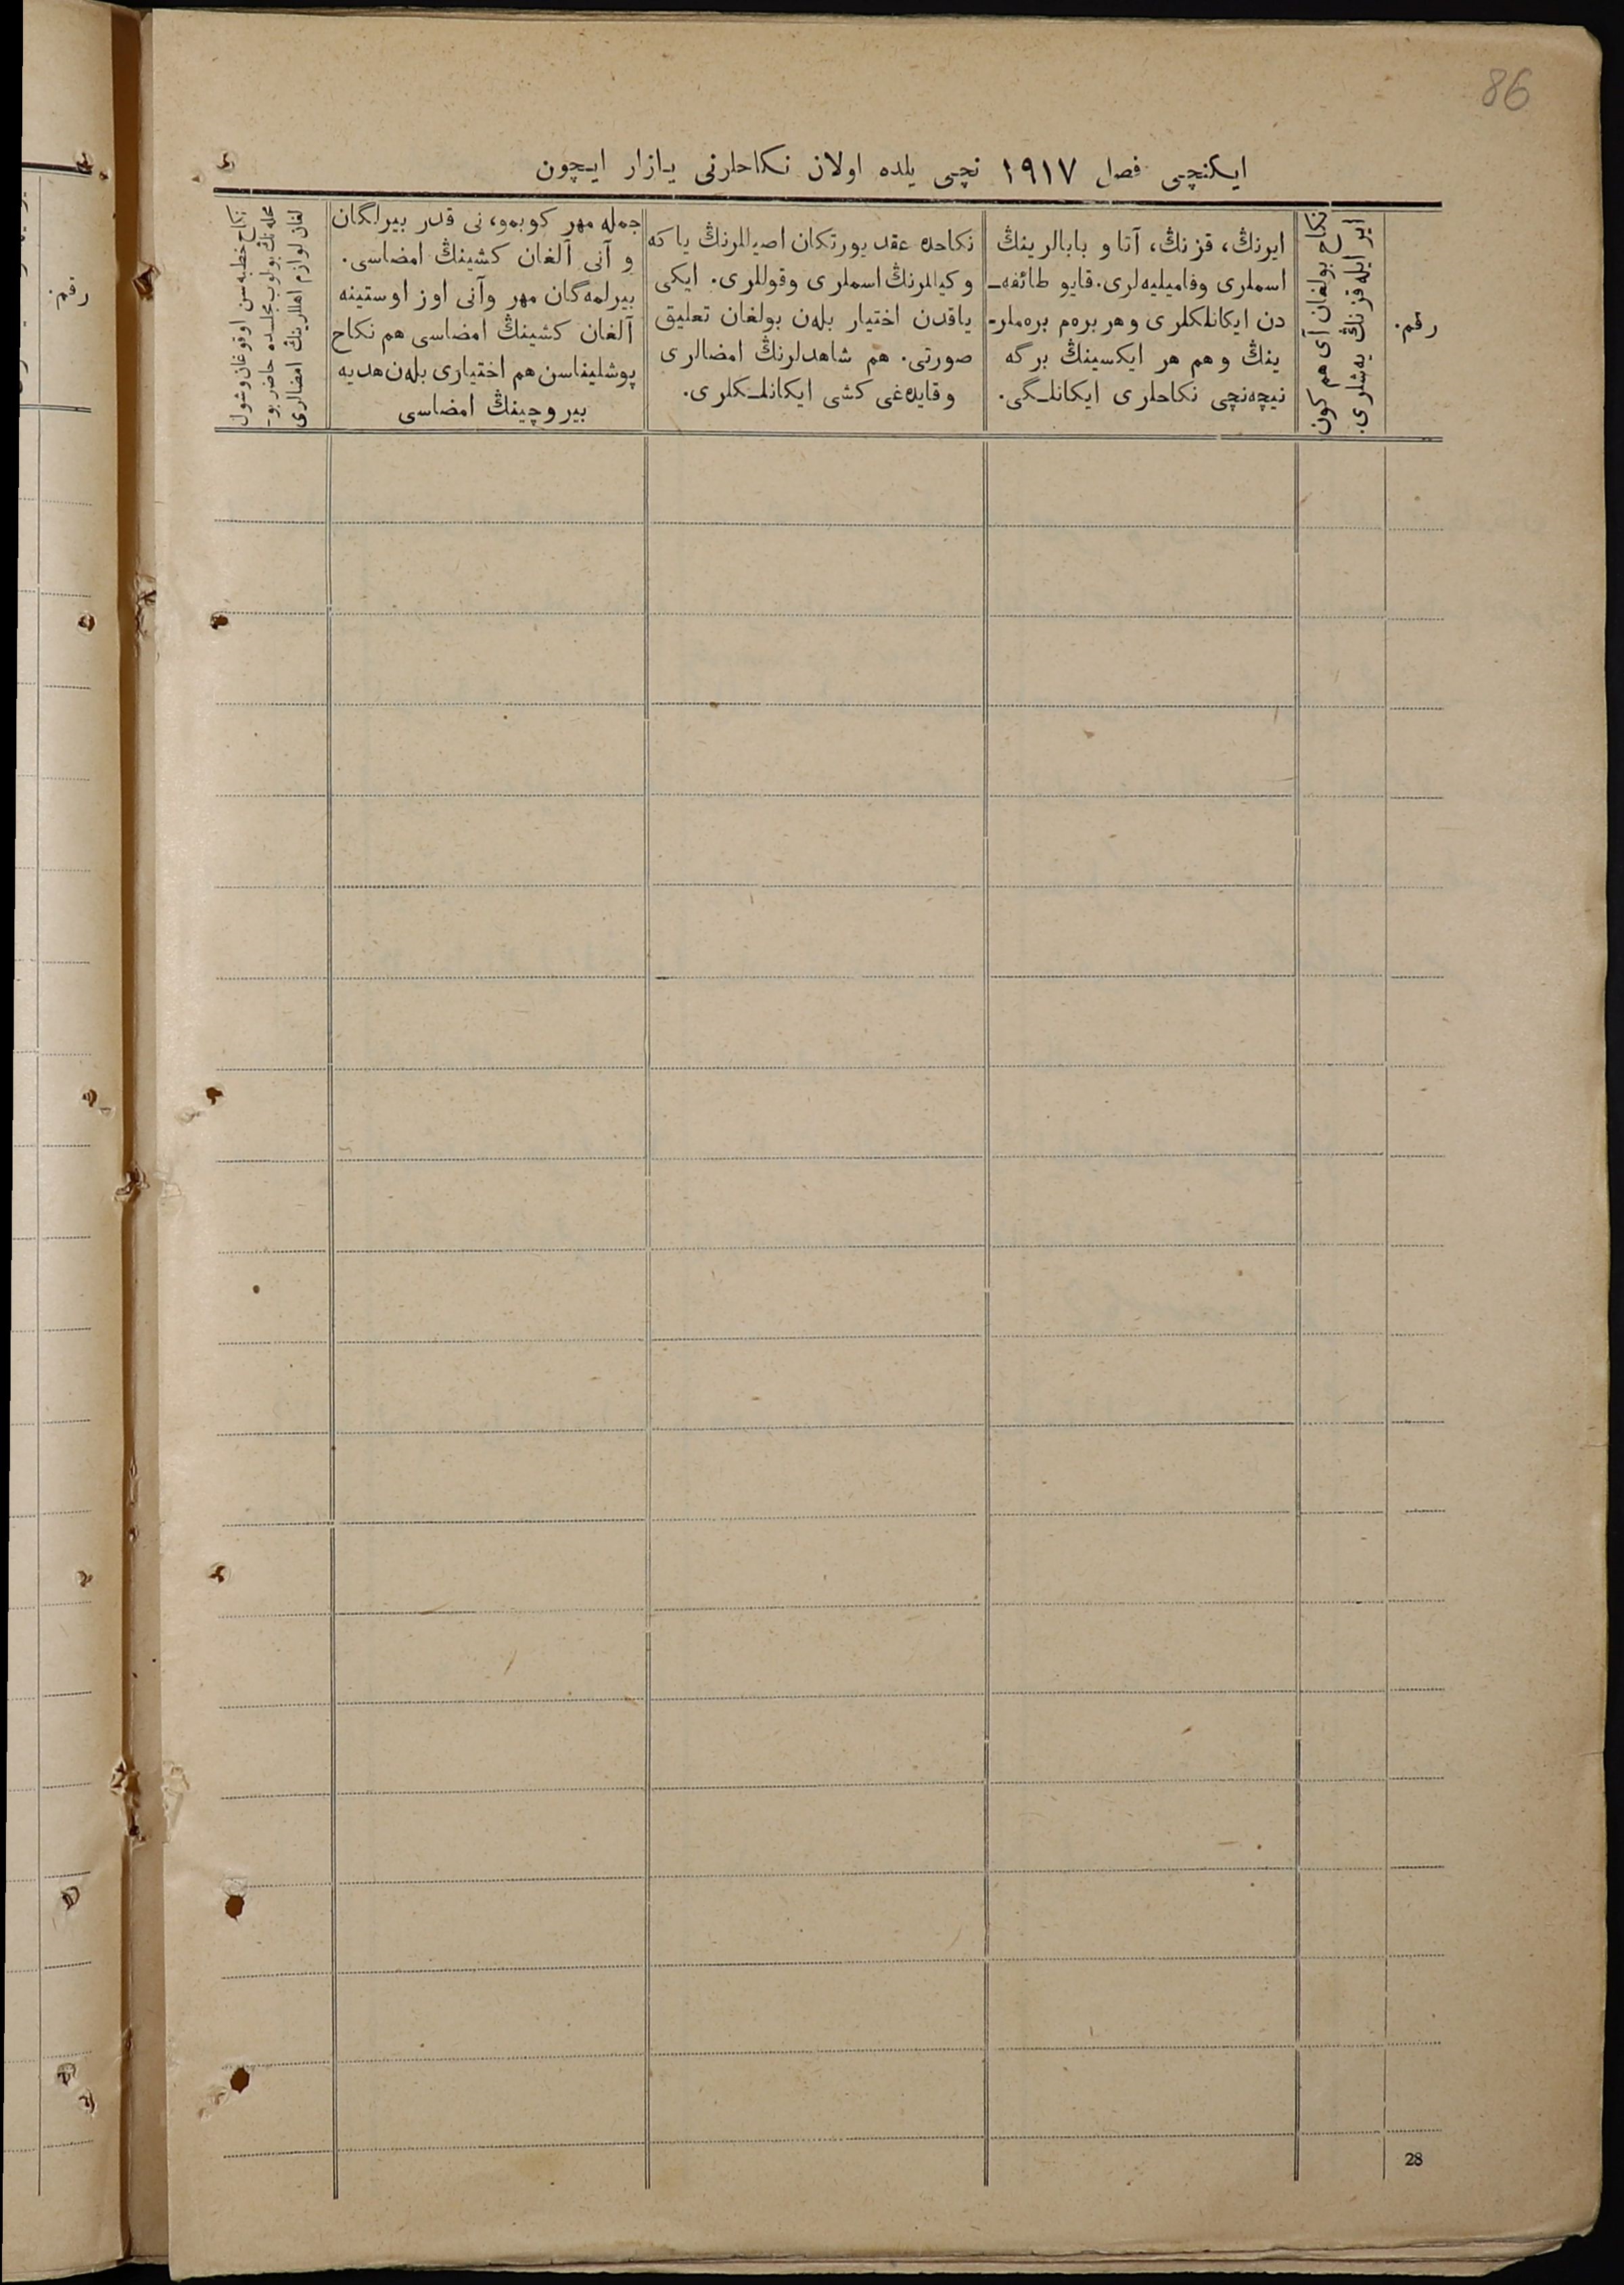 86
ایکنچی فصل ۱۹۱۷ نچی یلده اولان نکاحلرنی یازار ایچون
رقم.
ایر ایله قزنڭ یه‌شلری.
نکاح بولغان آی هم کون
ایرنڭ، قزنڭ، آتا و بابالرینڭ
اسملری وفامیلیه‌لری. قایو طائفه‌ـ
دن ایکانلکلری وهر بره‌م بره‌ملر-
ینڭ وهم هر ایکسینڭ برگه
نیچه‌نچی نکاحلری ایکانلـگی.
نکاحده عقد یورتکان اصیللرنڭ یا که
وکیللرنڭ اسملری وقوللری. ایکی
یاقدن اختیار بله‌ن بولغان تعلیق
صورتی. هم شاهدلرنڭ امضالری
وقایده‌غی کشی ایکانلـکلری.
جمله مهر کوبمو، نی قدر بیرلگان
و آنی آلغان کشینڭ امضاسی.
بیرلمه‌گان مهر وآنی اوز اوستینه
آلغان کشینڭ امضاسی هم نکاح
پوشلیناسن هم اختیاری بله‌ن هدیه
بیروچینڭ امضاسی
نکاح خطبه‌سن اوقوغان وشول
محله‌نڭ بولوب مجلسده حاضر بو-
لغان لوازم اهللرینڭ امضالری
رقم.
28